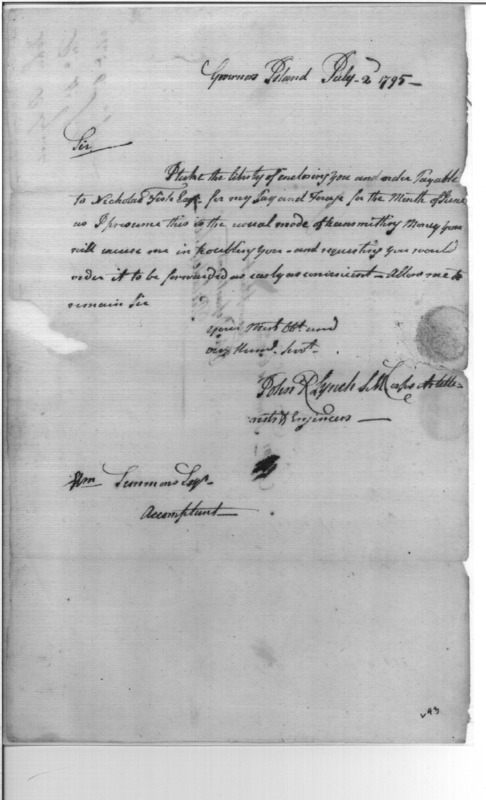 Governors Island July 2d 1795 —
Sir
I take the liberty of enclosing you and order Payable
to Nicholas Fish Esqr. for my Pay and Forage for the Month of June
as I presume this is the usual mode of transmitting Money you
will excuse me in troubling you - and requesting you would
order it to be forwarded as early as convenient — Allow me to
remain Sir
your Most Obt and
very Humbl. Servt.
John R Lynch S.M Corps Artille-
rists & Engineers —
Wm Simmons Esqr.
Accomptant —